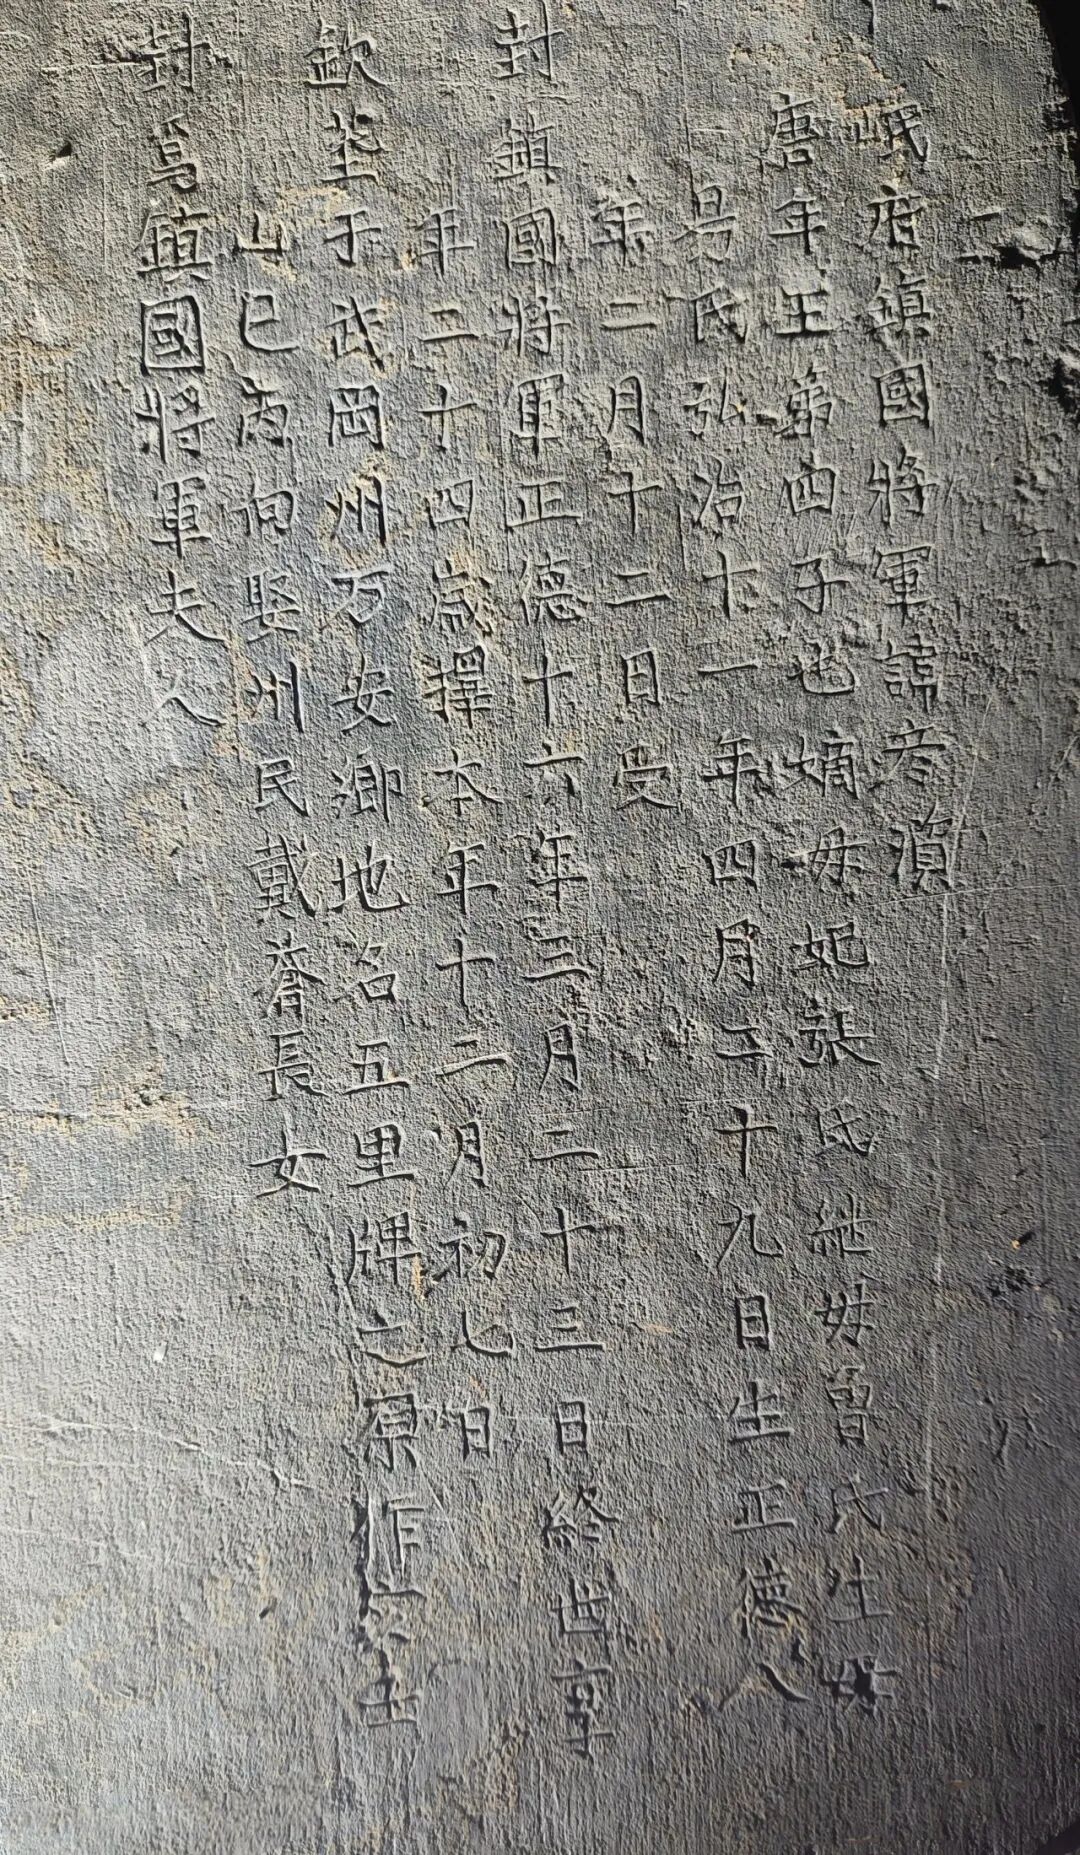 岷府鎮國將軍諱彥濵
唐年王弟四子也嫡母妃張氏継母曾氏生母
易氏弘治十一年四月二十九日生正德八
年二月十二日受
封鎮國將軍正德十六年三月二十三日終世享
年二十四歲擇本年十二月初七日
欽塟于武岡州万安鄉地名五里牌之原作
山巳丙向娶州民戴耆長女
封爲鎮國將軍夫人